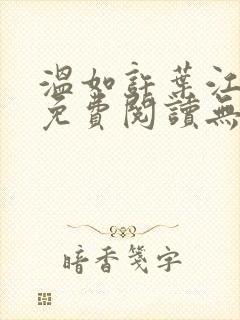 溫如許葉江
免費閱讀無
暗香箋字